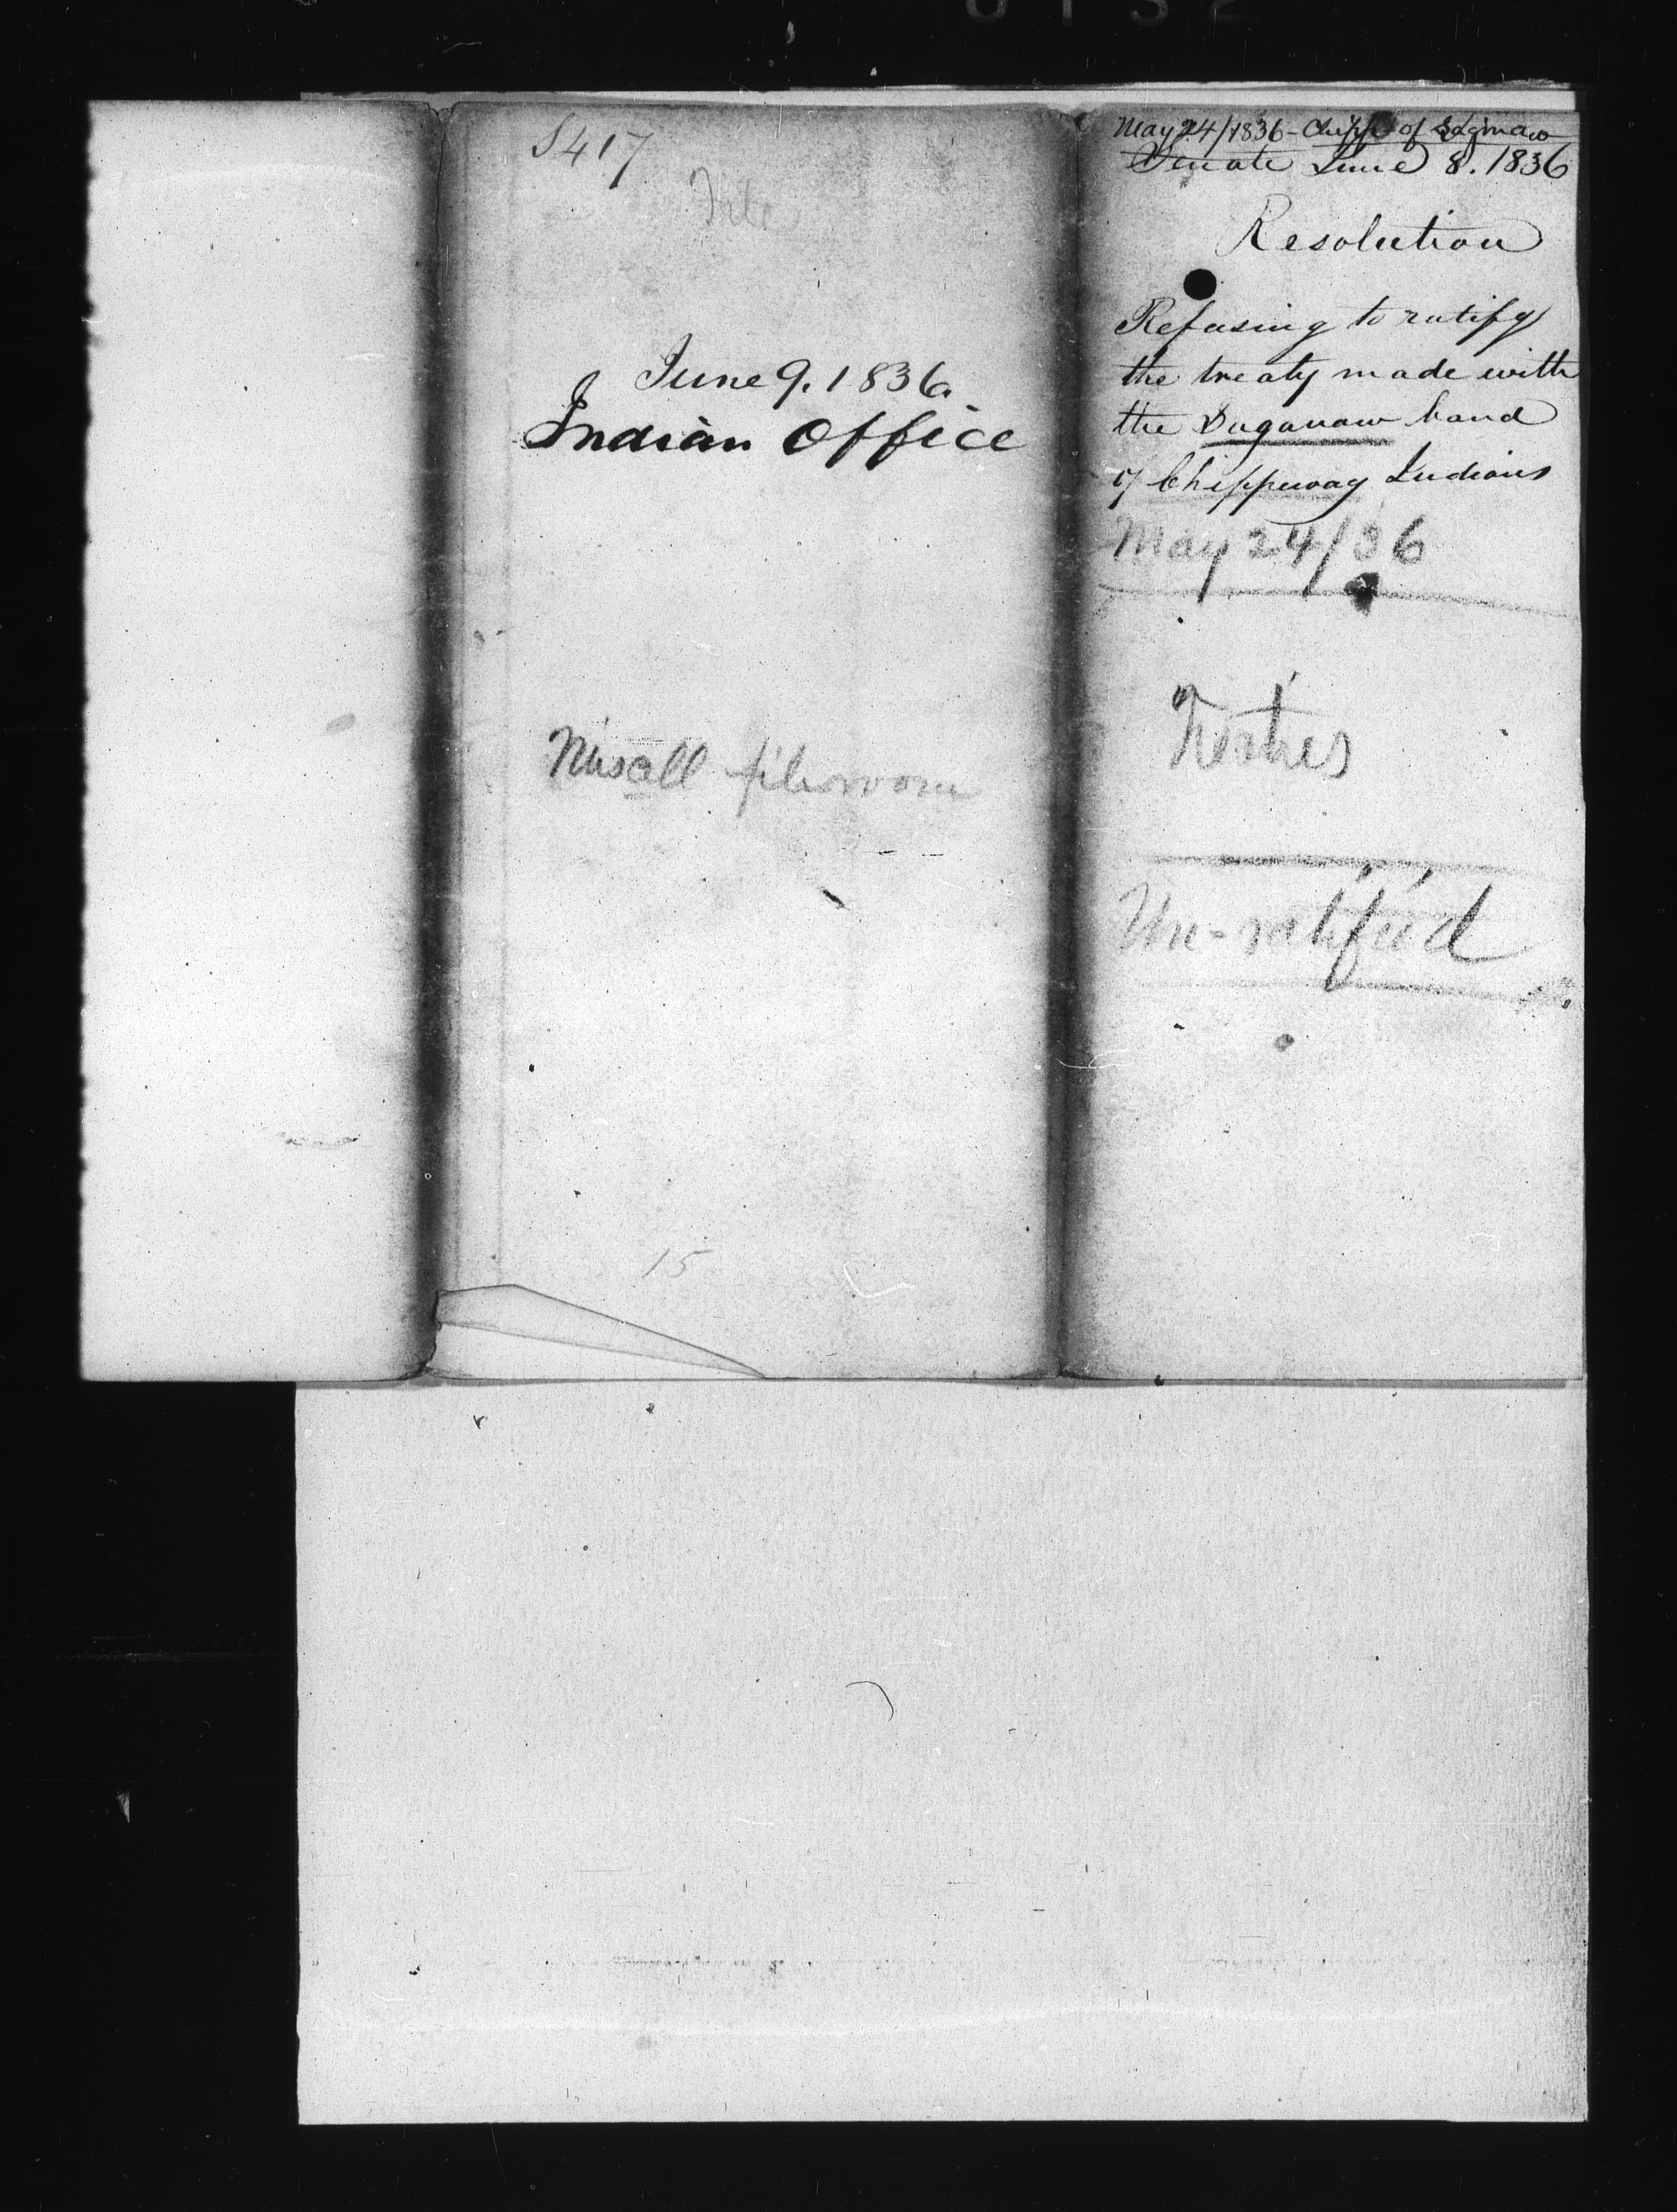 S417
File
June 9. 1836.
Indian Office
Misall fileroom
15
May 24/1836 - Chipps of Saginaw
Senate June 8. 1836
Resolution
Refusing to ratify
the treaty made with
the Saganaw band
of Chippeway Indians
May 24/36
Treaties
Un-ratified